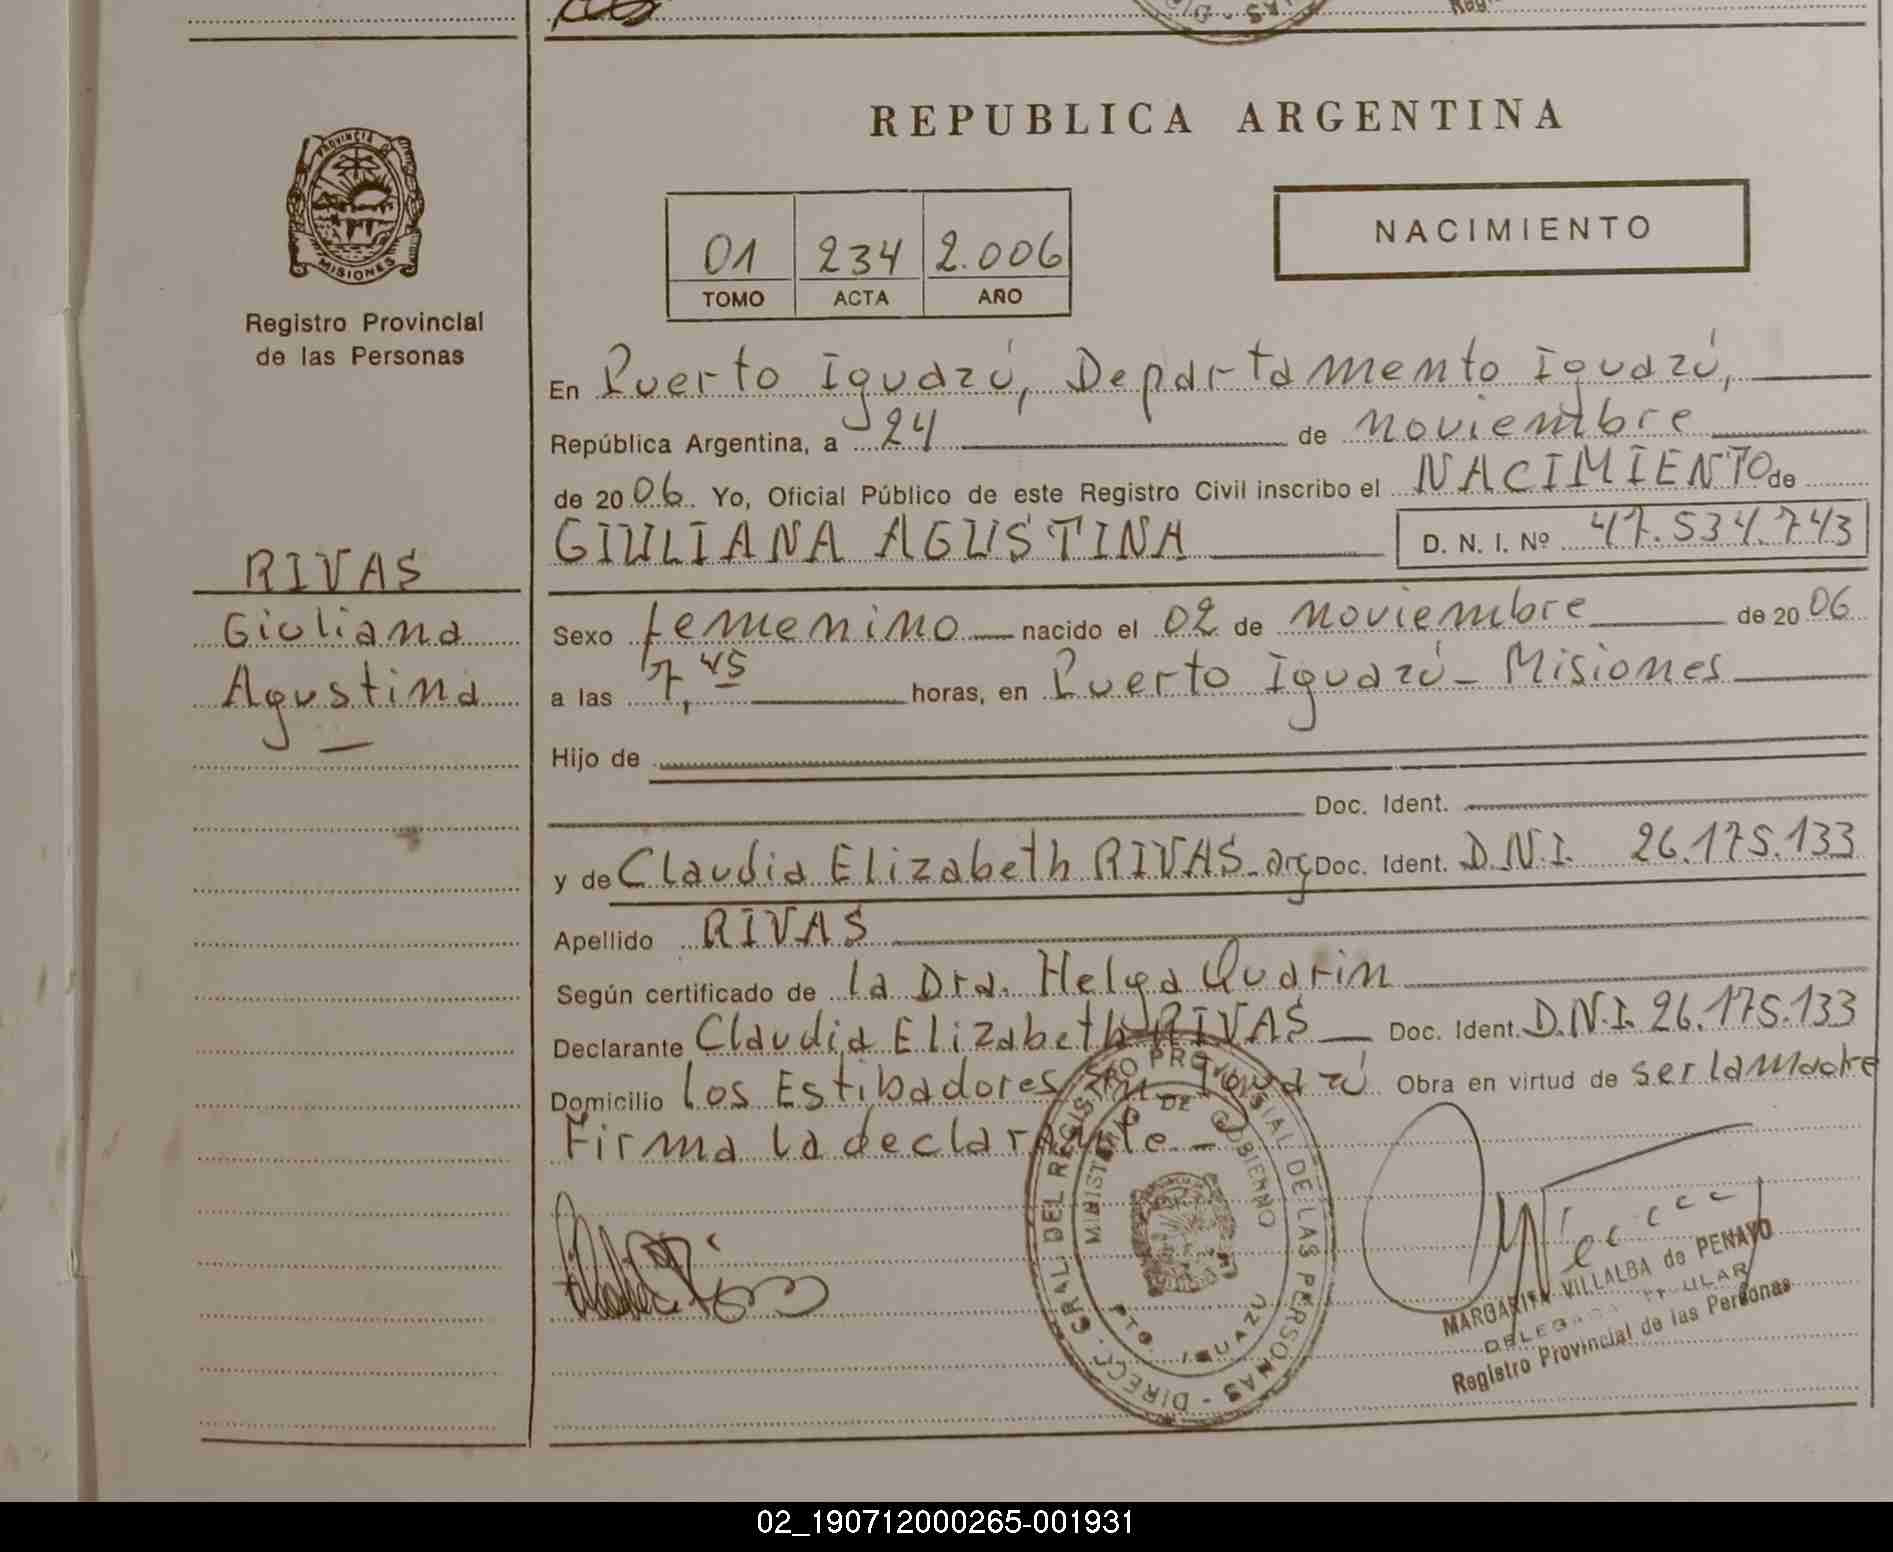 REPUBLICA ARGENTINA
PROVINCIA DE
MISIONES
Registro Provincial
de las Personas
01 234 2.006
TOMO ACTA AÑO
NACIMIENTO
En Puerto Iguazú, Departamento Iguazú,
República Argentina, a 24 de noviembre
de 2006 Yo, Oficial Público de este Registro Civil inscribo el NACIMIENTO de
GIULIANA AGUSTINA D. N. I. Nº 47.534.743
RIVAS
Giuliana
Agustina
Sexo femenino nacido el 02 de noviembre de 2006
a las 7,45 horas, en Puerto Iguazú - Misiones
Hijo de
Doc. Ident.
y de Claudia Elizabeth RIVAS - arg Doc. Ident. D.N.I. 26.175.133
Apellido RIVAS
Según certificado de la Dra. Helga Quarin
Declarante Claudia Elizabeth RIVAS Doc. Ident. D.N.I. 26.175.133
Domicilio los Estibadores Iguazú Obra en virtud de ser la madre
Firma la declarante -
DIRECC. GRAL. DEL REGISTRO PROVINCIAL DE LAS PERSONAS
MINISTERIO DE GOBIERNO
PTO. IGUAZU
MARGARITA VILLALBA de PENAYO
DELEGADA TITULAR
Registro Provincial de las Personas
02_190712000265-001931